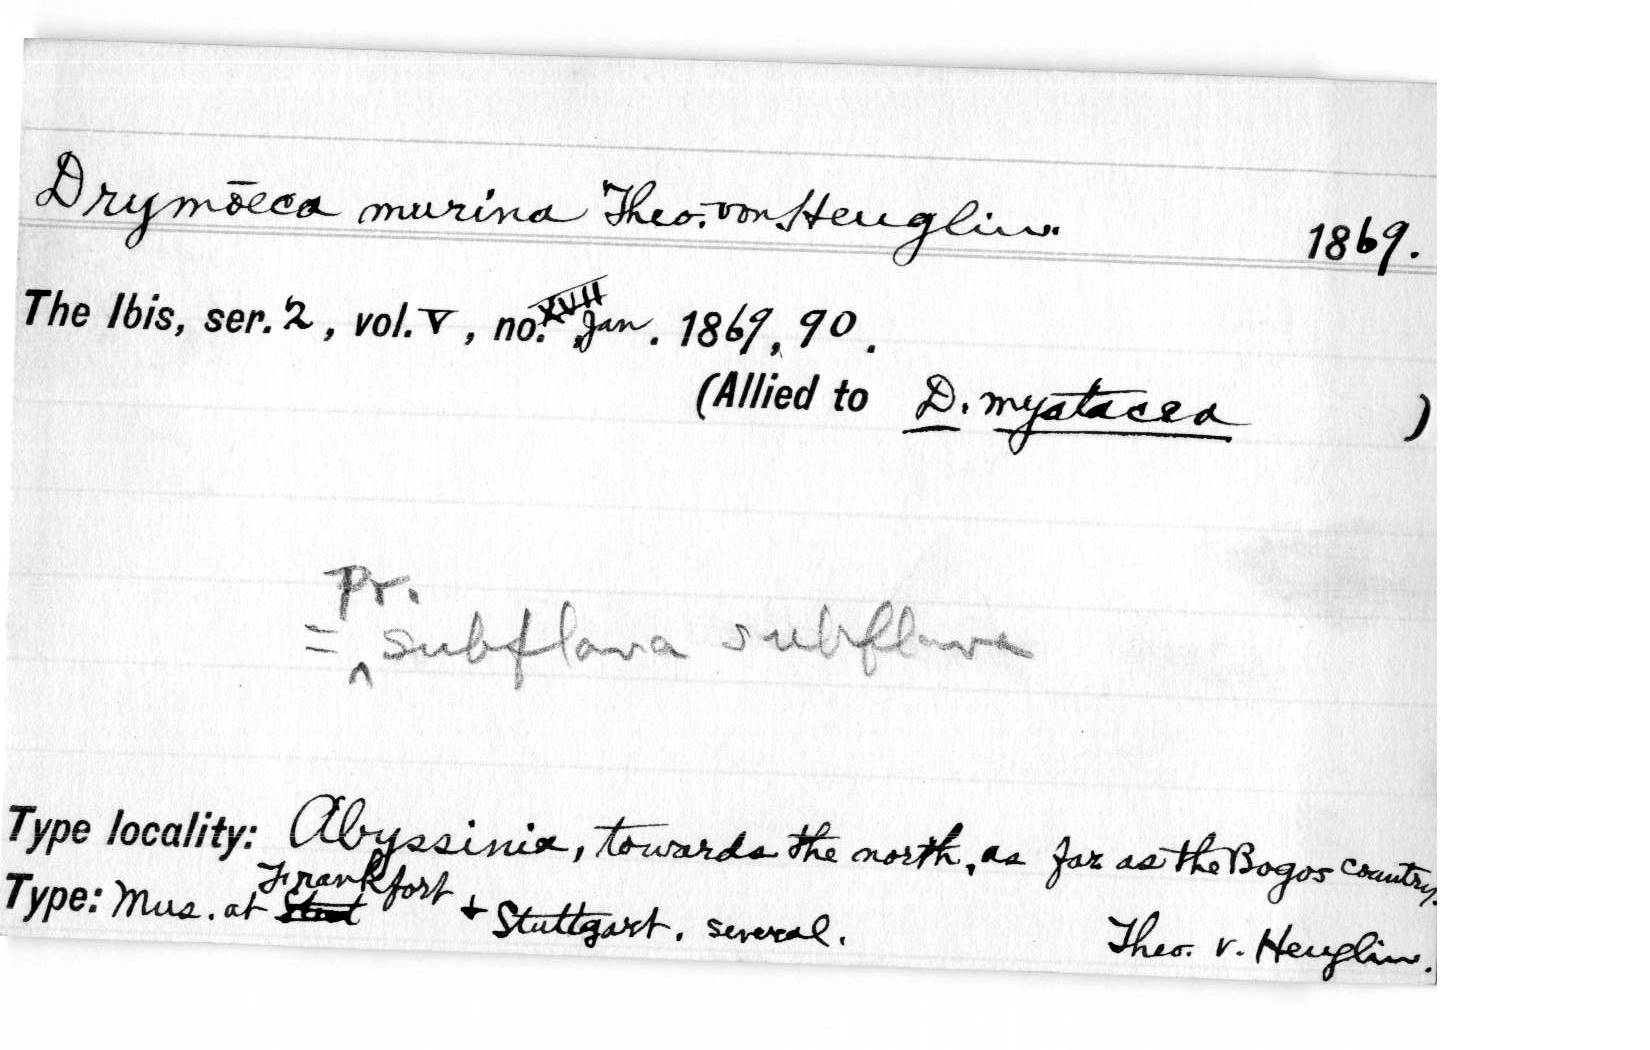 Drymōeca murina Theo. von Heuglin. 1869.
The Ibis, ser. 2, vol. V, no. XVII, Jan. 1869, 90.
(Allied to D. mystacea )
pr.
= ^ subflava subflava
Type locality: Abyssinia, towards the north, as far as the Bogos country.
Type: Mus. at Frankfort + Stuttgart. several. Theo. v. Heuglin.